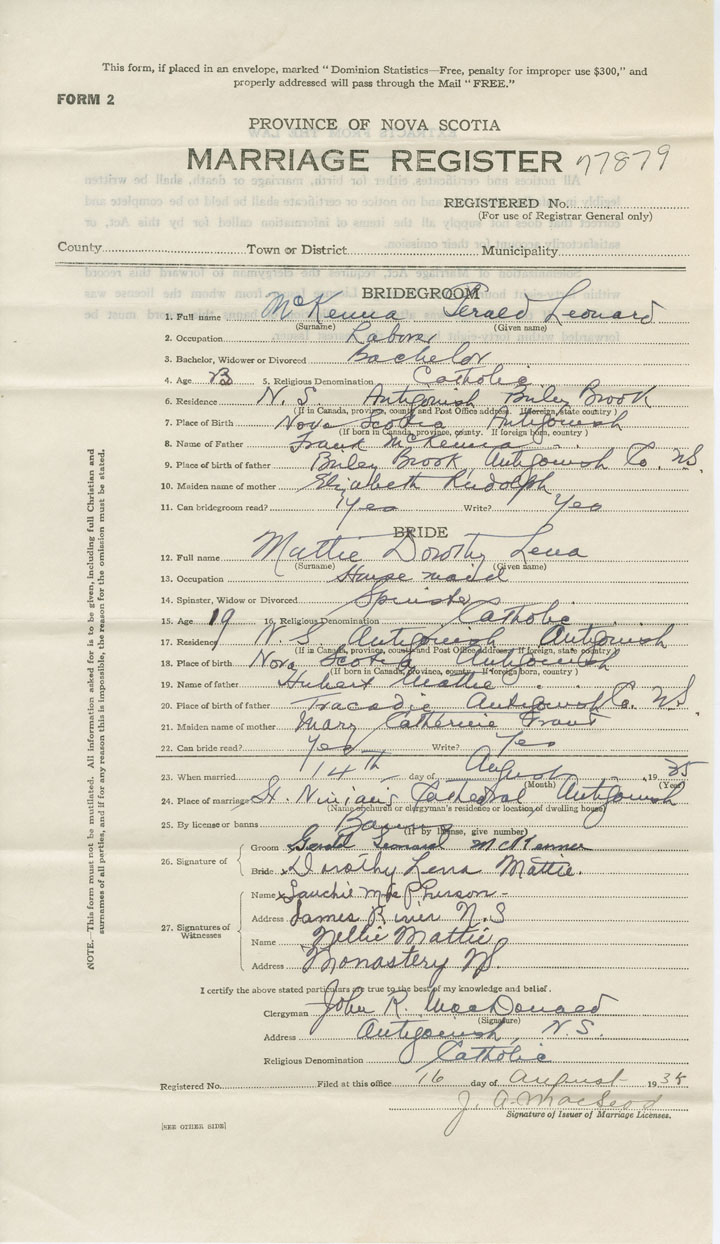 This form, if placed in an envelope, marked "Dominion Statistics—Free, penalty for improper use $300," and
properly addressed will pass through the Mail "FREE."
FORM 2
PROVINCE OF NOVA SCOTIA
MARRIAGE REGISTER 77879
REGISTERED No.
(For use of Registrar General only)
County Town or District Municipality
BRIDEGROOM
1. Full name McKenna Gerald Leonard
(Surname) (Given name)
2. Occupation Laborer
3. Bachelor, Widower or Divorced Bachelor
4. Age 23 5. Religious Denomination Catholic
6. Residence N.S. Antigonish Briley Brook
(If in Canada, province, county and Post Office address. If foreign, state country)
7. Place of Birth Nova Scotia Antigonish
(If born in Canada, province, county. If foreign born, country)
8. Name of Father Frank McKenna
9. Place of birth of father Briley Brook Antigonish Co. N.S.
10. Maiden name of mother Elizabeth Rudolph
11. Can bridegroom read? Yes Write? Yes
BRIDE
12. Full name Mattie Dorothy Lena
(Surname) (Given name)
13. Occupation House maid
14. Spinster, Widow or Divorced Spinster
15. Age 19 16. Religious Denomination Catholic
17. Residence N.S. Antigonish Antigonish
(If in Canada, province, county and Post Office address. If foreign, state country)
18. Place of birth Nova Scotia Antigonish
(If born in Canada, province, county. If foreign born, country)
19. Name of father Hubert Mattie
20. Place of birth of father Tracadie Antigonish Co. N.S.
21. Maiden name of mother Mary Catherine
22. Can bride read? Yes Write? Yes
23. When married 14th day of August, 1935
(Month) (Year)
24. Place of marriage St. Ninian's Cathedral, Antigonish
(Name of church or clergyman's residence or location of dwelling house)
25. By license or banns Banns
(If by license, give number)
26. Signature of
Groom Gerald Leonard McKenna
Bride Dorothy Lena Mattie.
27. Signatures of Witnesses
Name Lauchie MacPherson
Address James River N.S
Name Nellie Mattie
Address Monastery N.S.
I certify the above stated particulars are true to the best of my knowledge and belief.
Clergyman John R. MacDonald
(Signature)
Address Antigonish, N.S.
Religious Denomination Catholic
Registered No. Filed at this office 16 day of August 1935
J. A. MacLeod
Signature of Issuer of Marriage Licenses.
[SEE OTHER SIDE]
NOTE.—This form must not be mutilated. All information asked for is to be given, including full Christian and
surnames of all parties, and if for any reason this is impossible, the reason for the omission must be stated.